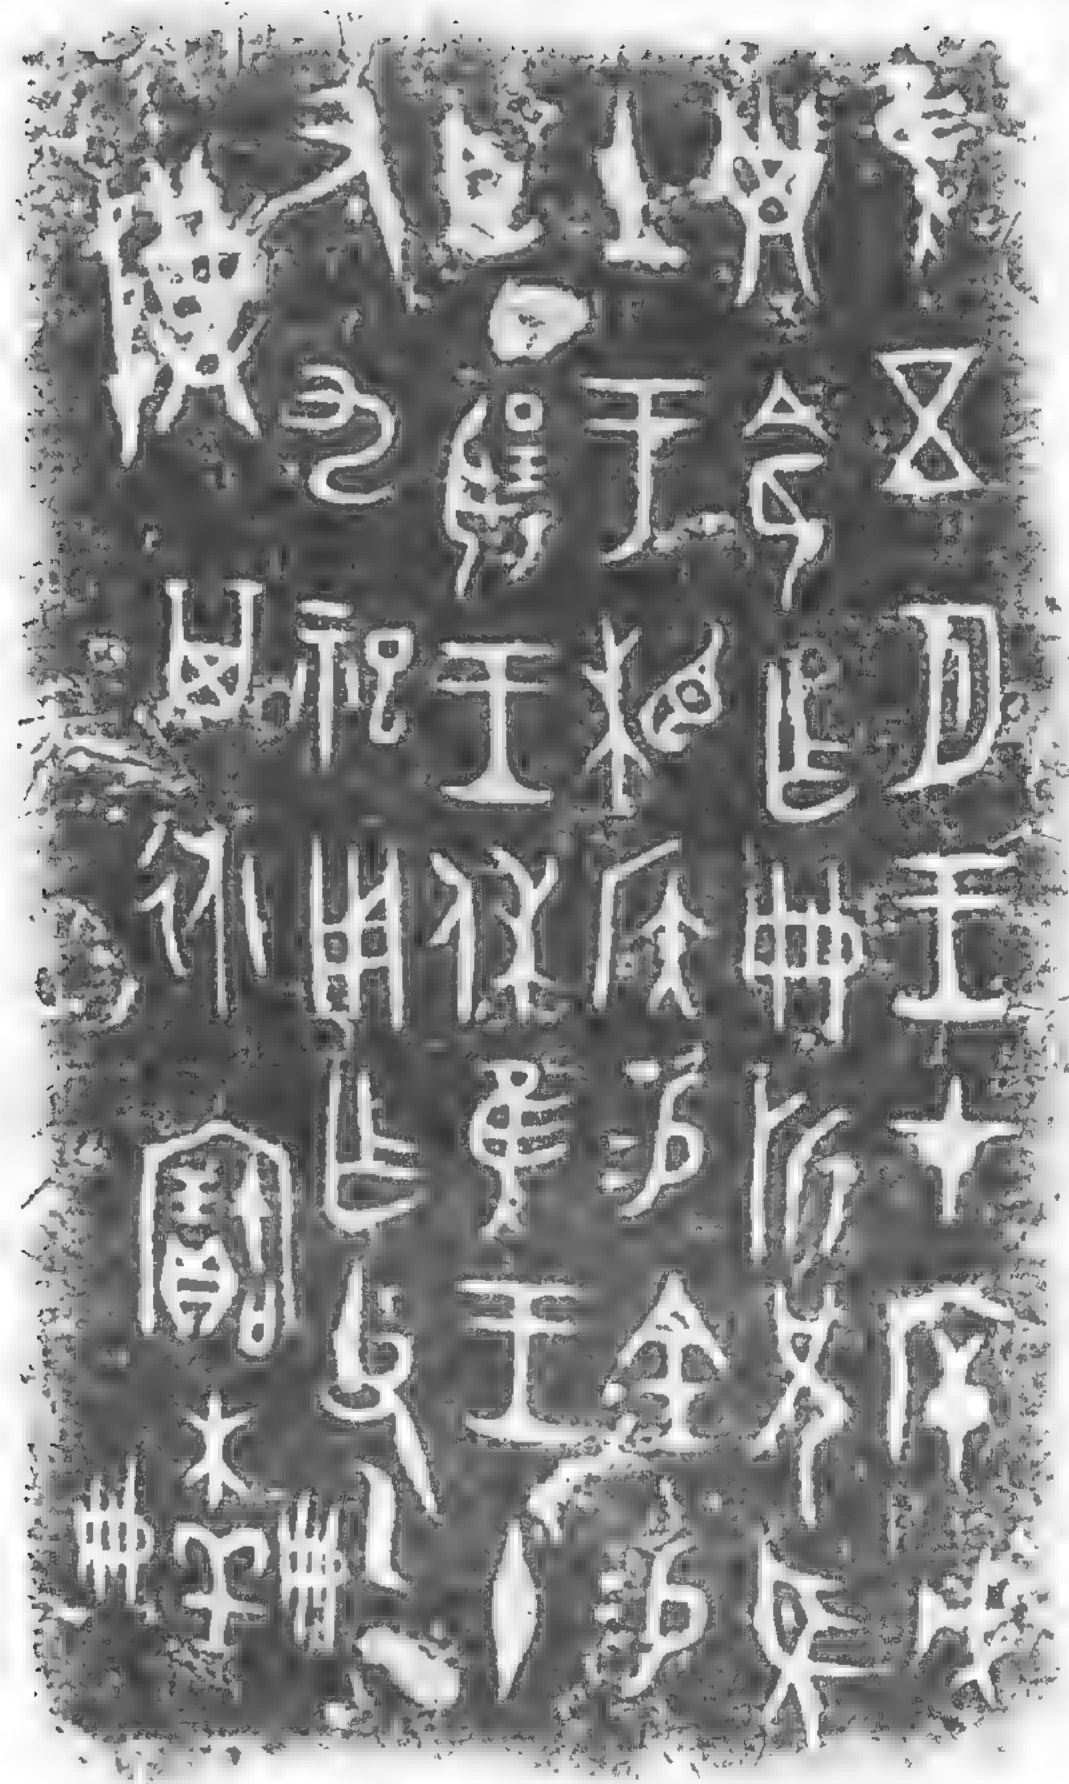 隹五月王才厈戊
子令乍冊折兄𦣠
土于相侯易金易
臣揚王休隹王十
又九祀用乍父乙
尊其永寶木羊冊